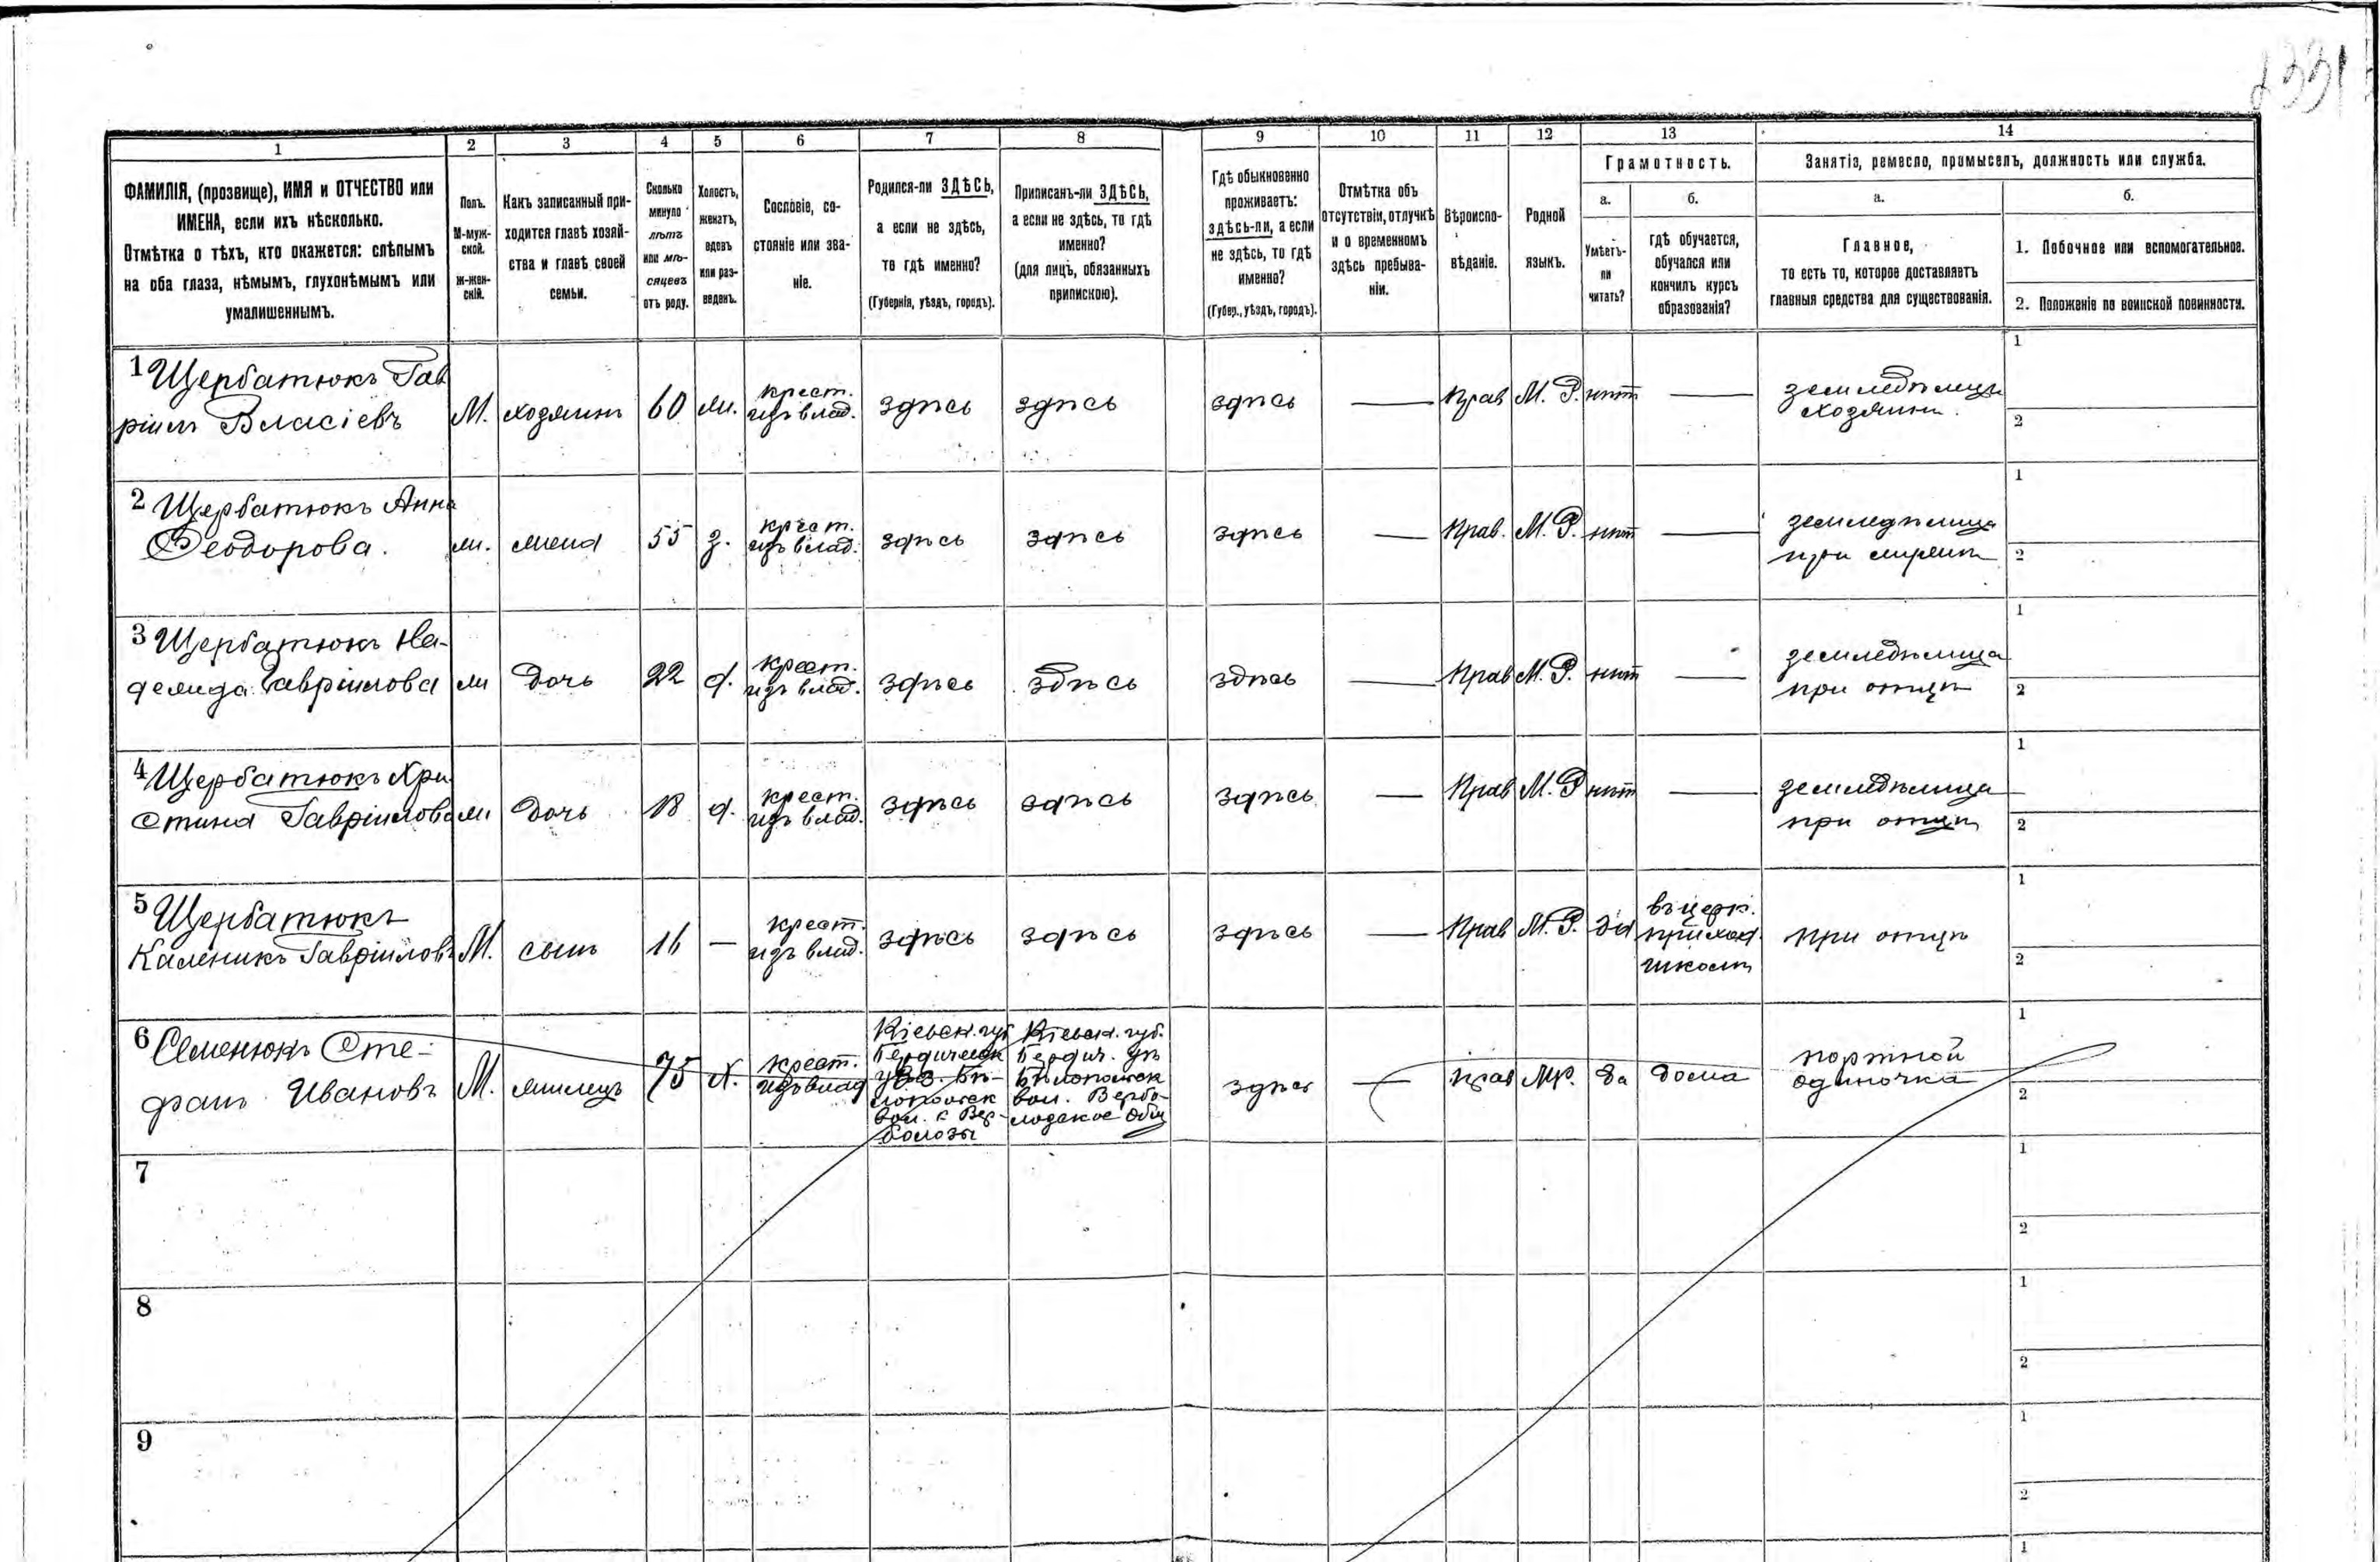 1331
1 2 3 4 5 6 7 8 9 10 11 12 13 14
ФАМИЛІЯ, (прозвище), ИМЯ и ОТЧЕСТВО или
ИМЕНА, если ихъ нѣсколько.
Отмѣтка о тѣхъ, кто окажется: слѣпымъ
на оба глаза, нѣмымъ, глухонѣмымъ или
умалишеннымъ.
Полъ.
М-муж-
ской.
Ж-жен-
скій.
Какъ записанный при-
ходится главѣ хозяй-
ства и главѣ своей
семьи.
Сколько
минуло
лѣтъ
или мѣ-
сяцевъ
отъ роду.
Холостъ,
женатъ,
вдовъ
или раз-
веденъ.
Сословіе, со-
стояніе или зва-
ніе.
Родился-ли ЗДѢСЬ,
а если не здѣсь,
то гдѣ именно?
(Губернія, уѣздъ, городъ).
Приписанъ-ли ЗДѢСЬ,
а если не здѣсь, то гдѣ
именно?
(для лицъ, обязанныхъ
припискою).
Гдѣ обыкновенно
проживаетъ:
здѣсь-ли, а если
не здѣсь, то гдѣ
именно?
(Губер., уѣздъ, городъ).
Отмѣтка объ
отсутствіи, отлучкѣ
и о временномъ
здѣсь пребыва-
ніи.
Вѣроиспо-
вѣданіе.
Родной
языкъ.
Грамотность.
а.
Умѣетъ-
ли
читать?
б.
гдѣ обучается,
обучался или
кончилъ курсъ
образованія?
Занятіе, ремесло, промыселъ, должность или служба.
а.
Главное,
то есть то, которое доставляетъ
главныя средства для существованія.
б.
1. Побочное или вспомогательное.
2. Положеніе по воинской повинности.
1 Щербатюкъ Гав
ріилъ Власіевъ
М. хозяинъ 60 ж. крест.
изъ влад. здѣсь здѣсь здѣсь — Прав М. Р. нѣтъ — земледѣлецъ
хозяинъ.
1
2
2 Щербатюкъ Анна
Феодорова.
ж. жена 55 з. крест.
изъ влад. здѣсь здѣсь здѣсь — Прав. М. Р. нѣтъ — земледѣлица
при мужѣ
1
2
3 Щербатюкъ На-
дежда Гавріилова
ж дочь 22 д. крест.
изъ влад. здѣсь здѣсь здѣсь — Прав М. Р. нѣтъ — земледѣлица
при отцѣ
1
2
4 Щербатюкъ Хри
стина Гавріилова
ж дочь 18 д. крест.
изъ влад. здѣсь здѣсь здѣсь — Прав М. Р нѣтъ — земледѣлица
при отцѣ
1
2
5 Щербатюкъ
Каленикъ Гавріиловъ
М. сынъ 16 — крест.
изъ влад. здѣсь здѣсь здѣсь — Прав М. Р. да въ церк.
приход.
школѣ при отцѣ
1
2
6 Семенюкъ Сте-
фанъ Ивановъ
М. жилецъ 75 Х. крест.
изъ влад
Кіевск. губ
Бердичевск
уѣз. Бѣ-
лопольск
вол. с Вер-
болозы
Кіевск. губ.
Бердич. уѣ
Бѣлопольск
вол. Вербо-
лозское Общ
здѣсь — Прав Мр. да дома портной
одиночка
1
2
7
1
2
8
1
2
9
1
2
1